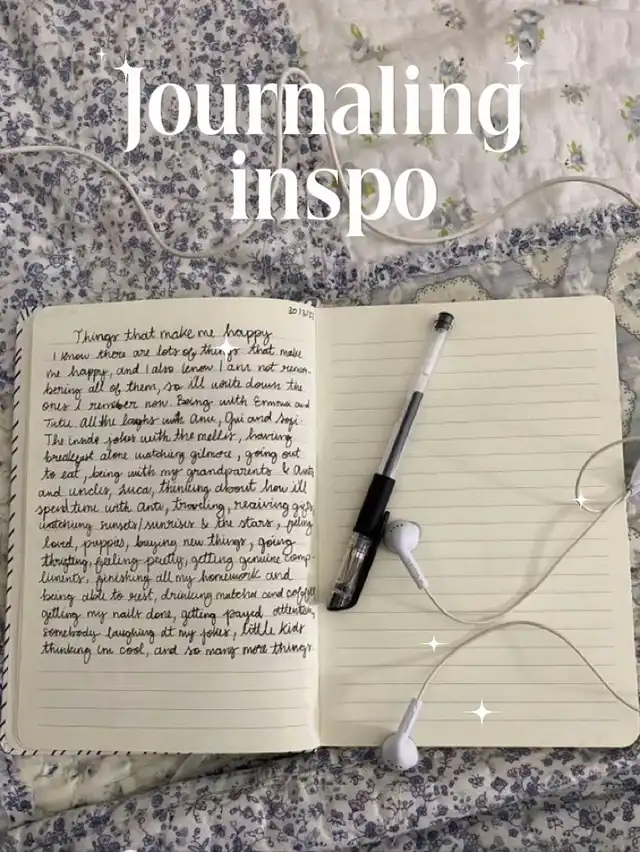 Journaling
inspo
Things that make me happy
I know there are lots of things that make
me happy, and I also know I am not remem-
bering all of them, so ill write down the
ones I remember now. Being with Emma and
Tutu. all the laughs with Anu, and
The inside jokes with the , having
breakfast alone watching gilmore, going out
to eat, being with my grandparents &
and uncles, thinking about how ill
spend time with traveling, reaciving gifts,
watching sunsets/sunrises & the stars, feeling
loved, puppies, buying new things, going
thrifting, feeling pretty, getting genuine comp-
liments, finishing all my homework and
being able to rest, drinking matcha and coffee
getting my nails done, getting payed attention,
somebody laughing at my jokes, little kids
thinking im cool, and so many more things.